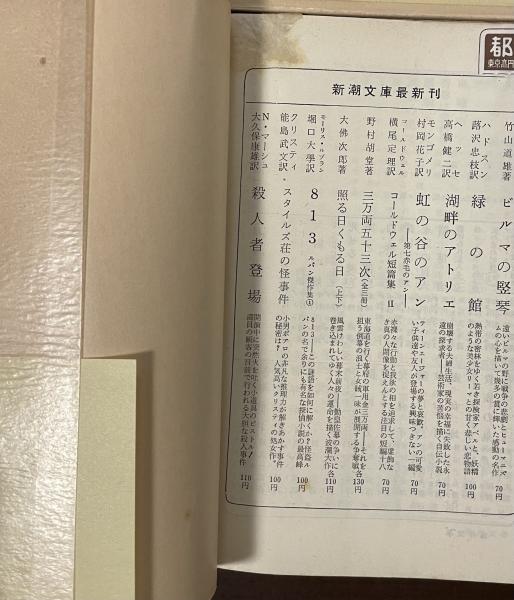 都
東京高円
新潮文庫最新刊
竹山道雄著 ビルマの竪琴
遠いビルマの野に戦争の悲劇とヒューマニズムの心を描いて幾多の賞に輝いた感動の名作
70円
ハドスン
蕗沢忠枝訳 緑の館
熱帯の密林をゆく若き探検家アベルと、妖精のような美少女リーマとの甘く悲しい恋物語
100円
ヘッセ
高橋健二訳 湖畔のアトリエ
崩壊する夫婦生活、現実の幸福に失敗した永遠の探求者――芸術家の苦悩を描く自伝小説
70円
モンゴメリ
村岡花子訳 虹の谷のアン
――第七赤毛のアン――
ティーンエージャーの夢と哀歓、アンの可愛い子供達や友人が登場する興味つきない一編
110円
コールドウェル
横尾定理訳 コールドウェル短篇集 II
赤裸々な行動と我欲の相を追求して、悲劇なき真の人間像を捉えんとする注目の短編十八
70円
野村胡堂著 三万両五十三次(全三冊)
東海道を行く幕府の軍用金三万両――それを狙う倒幕の浪士と女賊一味が展開する争奪戦
各130円
大佛次郎著 照る日くもる日(上下)
風雲けわしい幕末前夜――勤皇佐幕の争いに巻き込まれてゆく人々の運命を描く波瀾大作
各110円
モーリス・ルブラン
堀口大學訳 813 ルパン傑作集(1)
813――この謎語を如何に解くか?怪盗ルパンの名で余りにも有名な探偵小説の最高峰
100円
クリスティ
能島武文訳 スタイルズ荘の怪事件
小男ポアロの非凡な推理力が解きあかす事件の秘密は? 人気高いクリスティの処女作。
100円
N・マーシュ
大久保康雄訳 殺人者登場
開演中に突然火を吐く小道具のピストル!満員の観客の目前で行われる大胆な殺人事件
110円